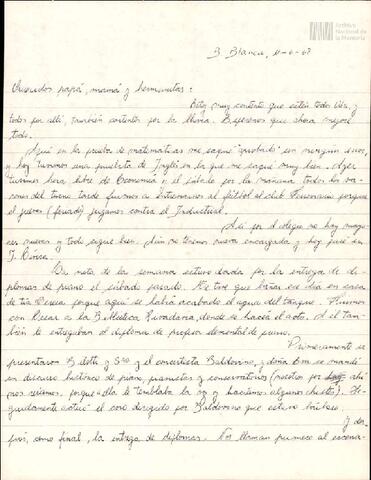 Archivo
Nacional de
la Memoria
B. Blanca, 11-6-68
Queridos papá, mamá y hermanitas:
Estoy muy contento que estén todos bien, y
todos por allí, también contentos por la lluvia. Esperemos que ahora mejore
todo.
Aquí en la prueba de matemáticas me saqué "aprobado" sin ningún
y hoy tuvimos una pruebita de Inglés en la que me saqué muy bien. Ayer
tuvimos hora libre de Economía y el sábado por la mañana todos los varo-
nes del turno tarde fuimos a entrenarnos al fútbol al club porque
el jueves (feriado) jugamos contra el Industrial.
Así por el colegio no hay mayores
nuevas y todo sigue bien. Aún no tenemos nueva encargada y hoy
J.
La nota de la semana estuvo dada por la entrega de di-
plomas de piano el sábado pasado. Me tuve que bañar ese día en casa
de tía porque aquí se había acabado el agua del tanque. Fuimos
con a la Biblioteca Rivadavia donde se hacía el acto. A él tam-
bién le entregaban el diploma de profesor elemental de piano.
Primeramente se
presentaron y el concertista Baldovino, y doña se mandó
un discurso histórico de piano, pianistas y conservatorios (nosotros por ahí
nos reíamos, porque a ella le temblaba la voz y hacíamos algunos chistes). Se-
guidamente actuó el coro dirigido por Baldovino que estuvo bárbaro.
Y des-
pués, como final, la entrega de diplomas. Nos llaman primero al escena-